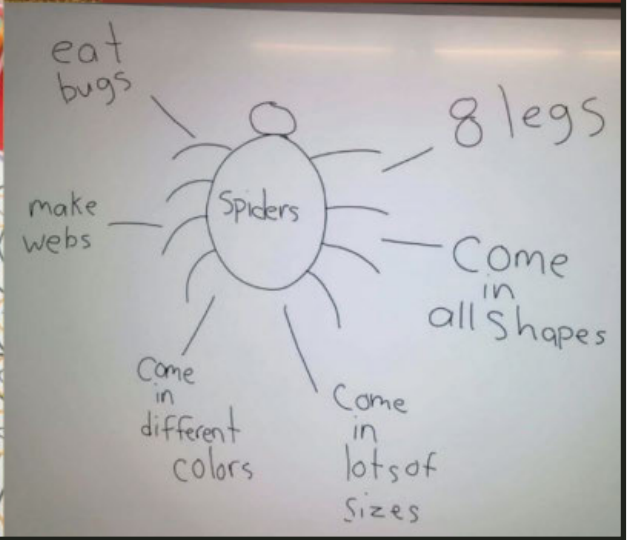 eat
bugs
8 legs
Spiders
make
webs
Come
in
all Shapes
Come
in
different
colors
Come
in
lots of
Sizes